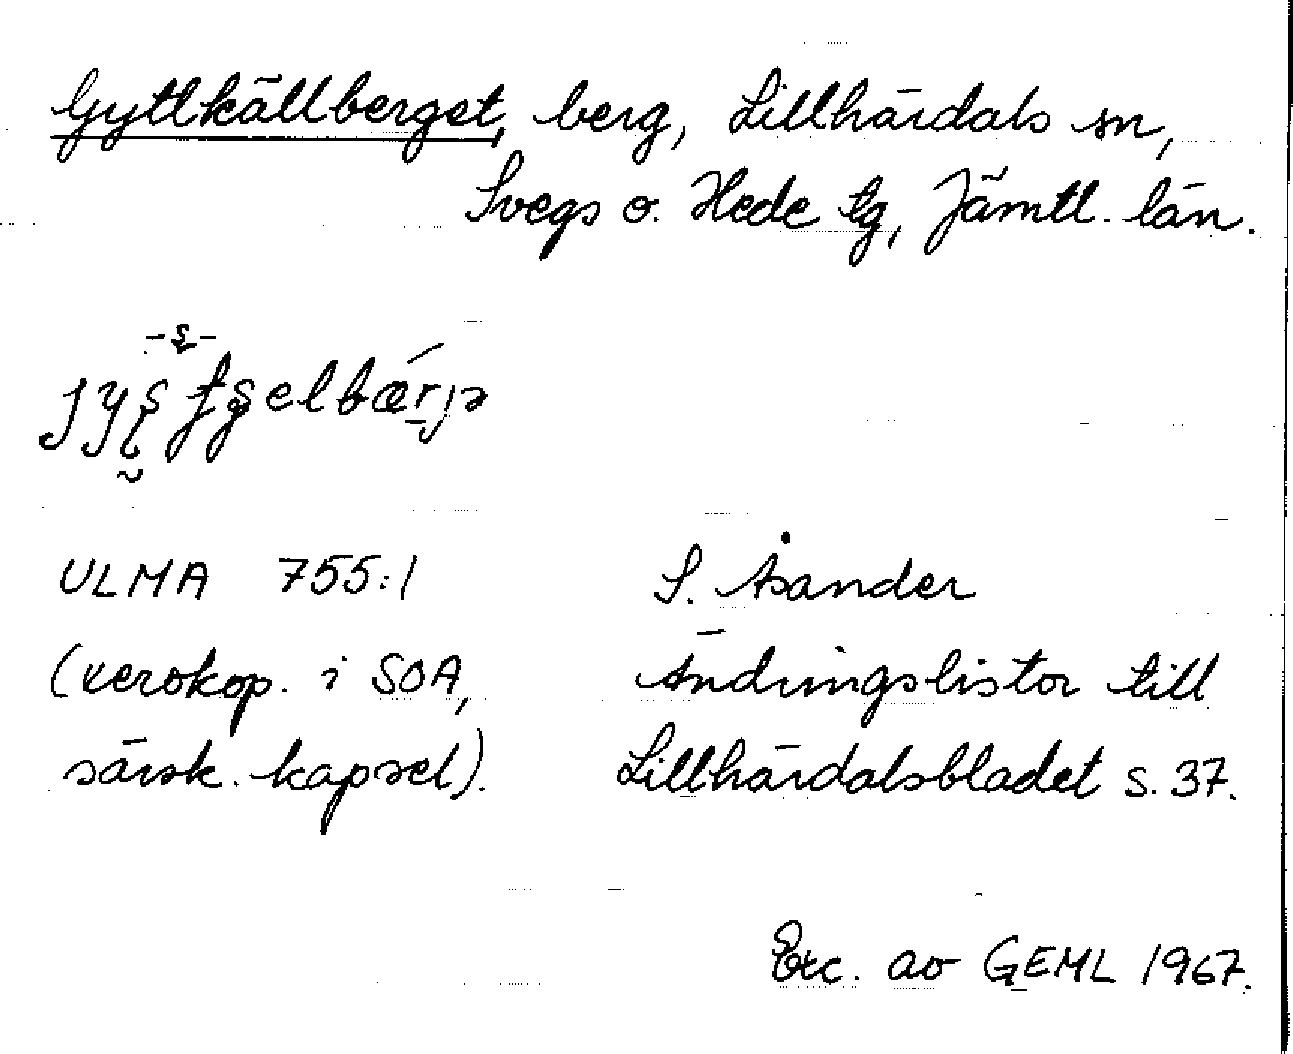 Gyttkällberget, berg, Lillhärdals sn,
Svegs o. Hede tg, Jämtl. län.
ULMA 755:1
S. Åsander
(xerokop. i SOA,
Ändringslistor till
särsk. kapsel).
Lillhärdalsbladet s. 37.
Exc. av GEML 1967.